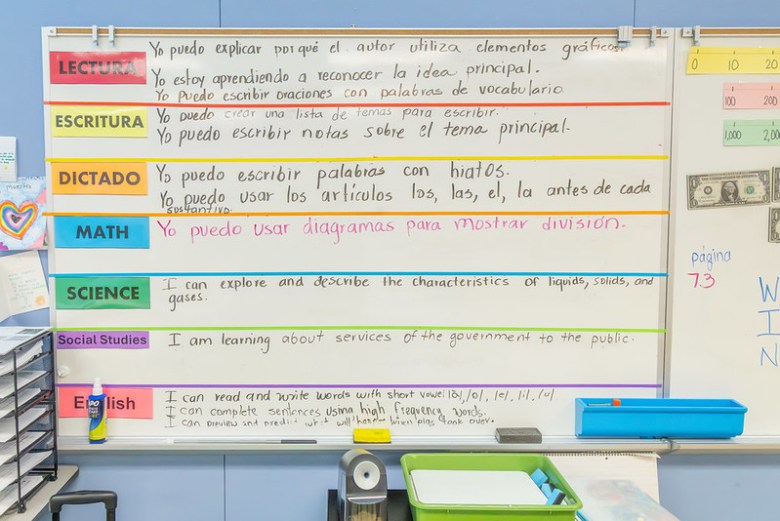 LECTURA
Yo puedo explicar por qué el autor utiliza elementos gráficos
Yo estoy aprendiendo a reconocer la idea principal.
Yo puedo escribir oraciones con palabras de vocabulario
ESCRITURA
Yo puedo crear una lista de temas para escribir.
Yo puedo escribir notas sobre el tema principal.
DICTADO
Yo puedo escribir palabras con hiatos.
Yo puedo usar los artículos los, las, el, la antes de cada
sustantivo.
MATH
Yo puedo usar diagramas para mostrar división.
SCIENCE
I can explore and describe the characteristics of liquids, solids, and
gases.
Social Studies
I am learning about services of the government to the public.
English
I can read and write words with short vowel /a/, /o/, /e/, /i/, /u/
I can complete sentences using high frequency words.
I can preview and predict what will happen when pigs take over.
0 10 20
100 200
1,000 2,00
página
73
W
I
N